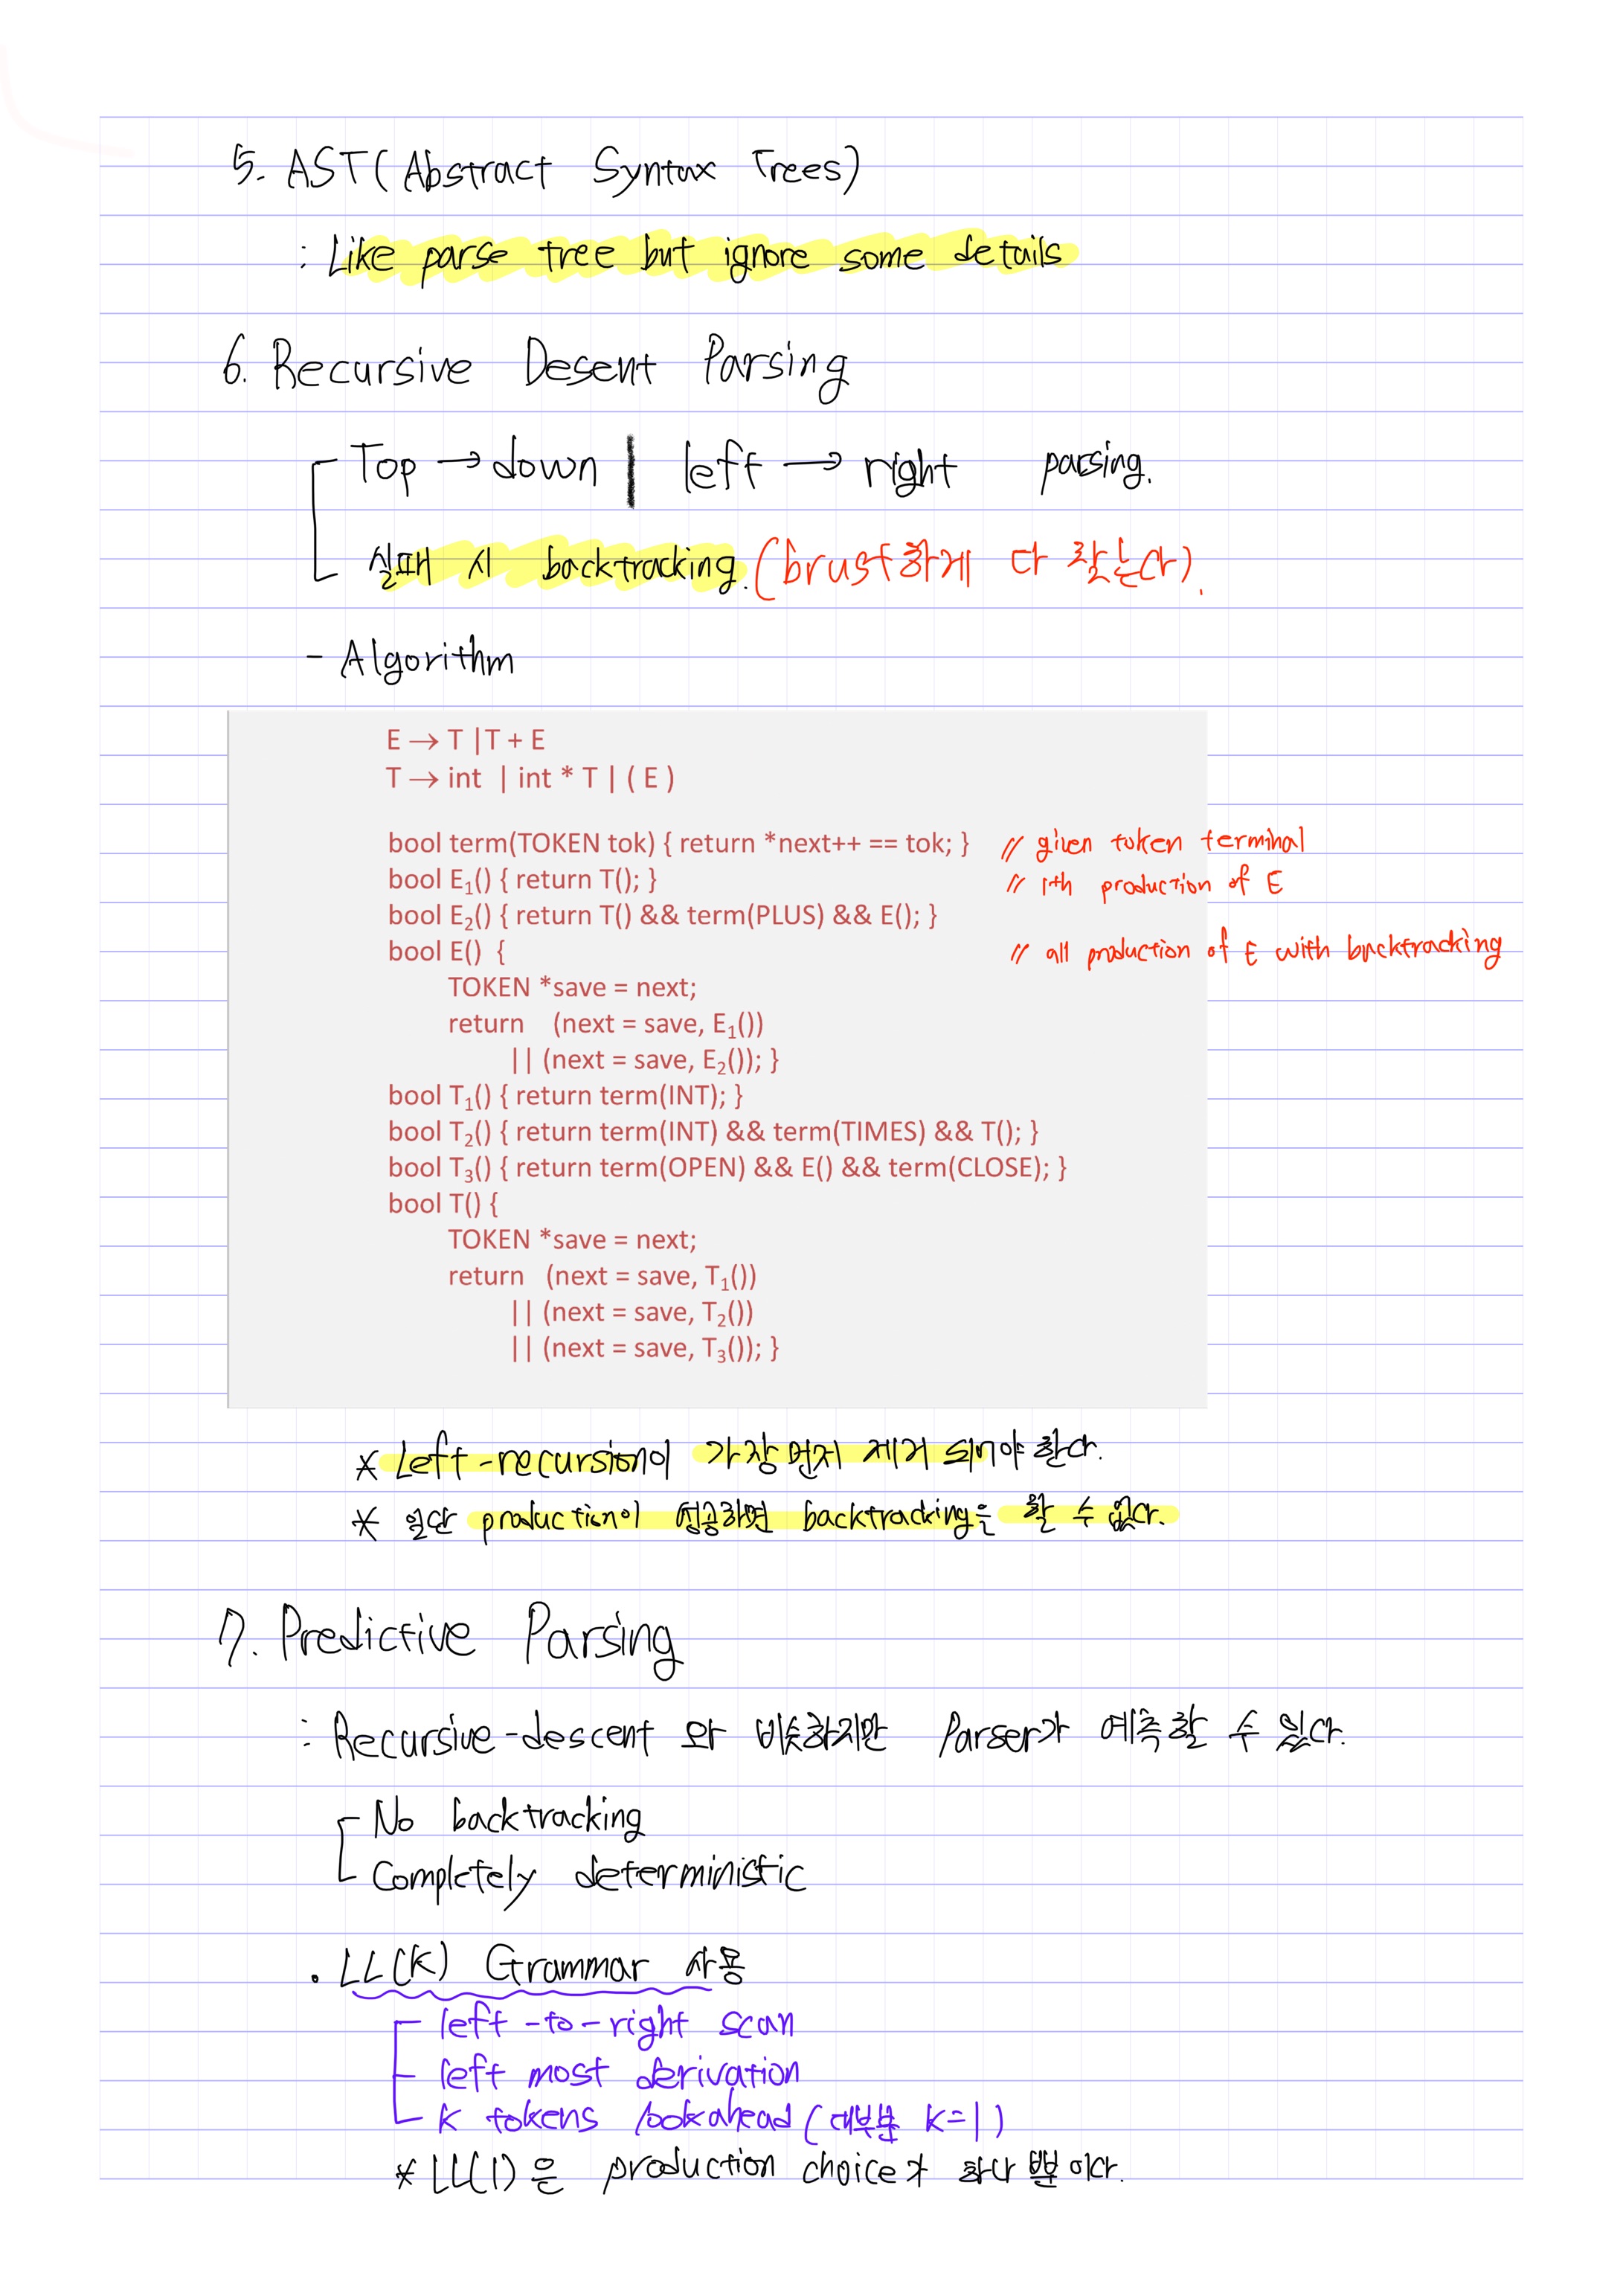 5. AST(Abstract Syntax Trees)
: Like parse tree but ignore some details
6. Recursive Desent Parsing
Top → down | left → right parsing.
실패 시 backtracking. (brust하게 다 핥는다).
- Algorithm
E → T | T + E
T → int | int * T | ( E )
bool term(TOKEN tok) { return *next++ == tok; } // given token terminal
bool E₁() { return T(); } // ith production of E
bool E₂() { return T() && term(PLUS) && E(); }
bool E() { // all production of E with backtracking
TOKEN *save = next;
return (next = save, E₁())
|| (next = save, E₂()); }
bool T₁() { return term(INT); }
bool T₂() { return term(INT) && term(TIMES) && T(); }
bool T₃() { return term(OPEN) && E() && term(CLOSE); }
bool T() {
TOKEN *save = next;
return (next = save, T₁())
|| (next = save, T₂())
|| (next = save, T₃()); }
* Left-recursion이 가장 먼저 제거 되어야 한다.
* 일단 production이 성공하면 backtracking을 할 수 없다.
7. Predictive Parsing
: Recursive-descent 와 비슷하지만 Parser가 예측할 수 있다.
No backtracking
Completely deterministic
. LL(K) Grammar 사용
left-to-right scan
left most derivation
K tokens lookahead (대부분 K=1)
* LL(1)은 production choice가 하나 뿐이다.